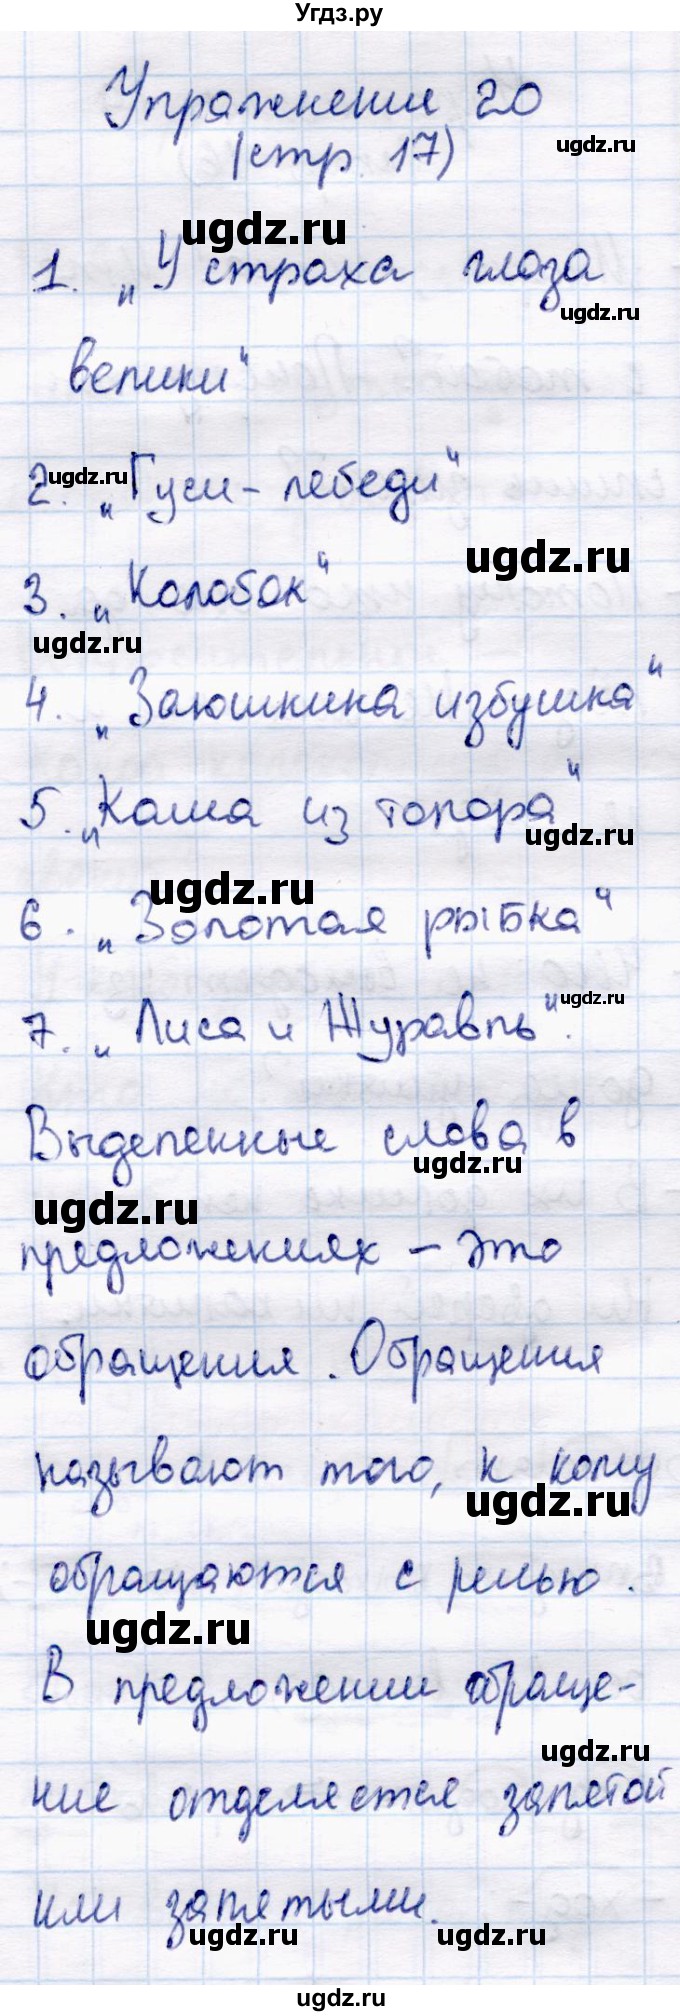 Угдз.ру
Упражнение 20
ugdz.ru
(стр. 17)
ugdz.ru
1. „У страха глаза
ugdz.ru
велики“
2. „Гуси-лебеди“
ugdz.ru
ugdz.ru
3. „Колобок“
ugdz.ru
4. „Заюшкина избушка“
5. „Каша из топора“
ugdz.ru
ugdz.ru
6. „Золотая рыбка“
ugdz.ru
7. „Лиса и Журавль“.
Выделенные слова в
ugdz.ru
ugdz.ru
предложениях – это
обращения. Обращения
называют того, к кому
ugdz.ru
обращаются с речью.
ugdz.ru
В предложении обраще-
ugdz.ru
ние отделяется запятой
или запятыми.
ugdz.ru
ugdz.ru
ugdz.ru